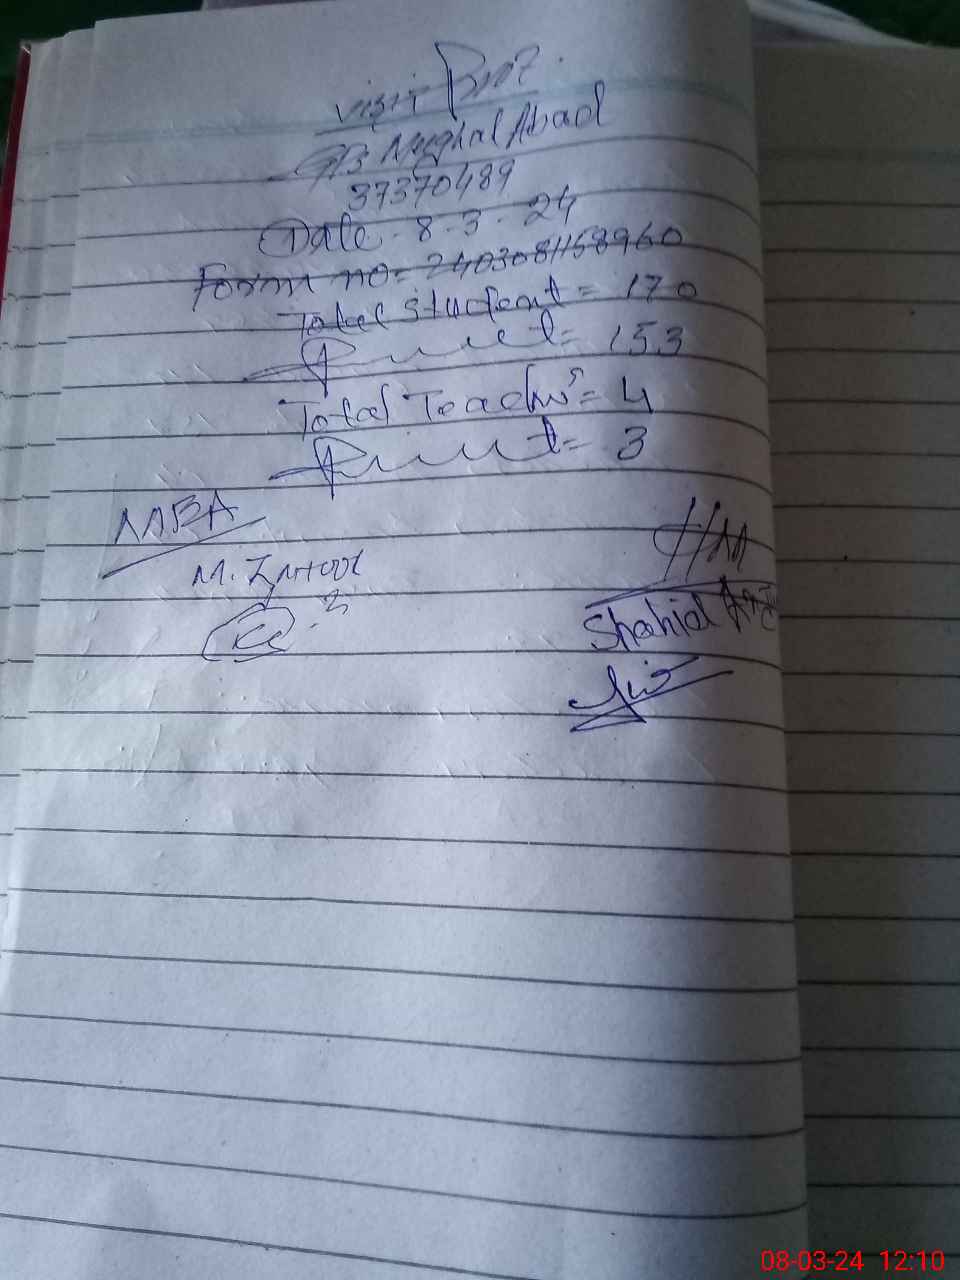 Visit
Mughal Abad
37370489
Date. 8.3.24
Form no= 2403081158960
Total Student = 170
Present= 153
Total Teachers= 4
Present= 3
MEA
HM
M.
Shahid
08-03-24 12:10